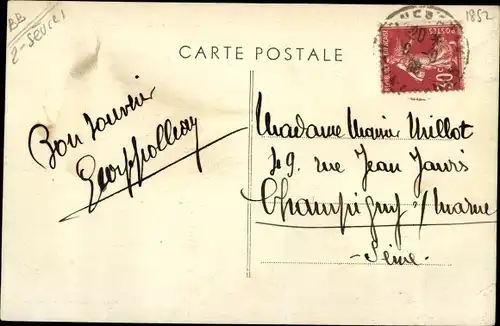 BB
2-Sevres
1852
CARTE POSTALE
REPUBLIQUE FRANCAISE
POSTES
Bon Souvenir
Madame Marie Millot
49. rue Jean Jaurès
Champigny s/Marne
- Seine -